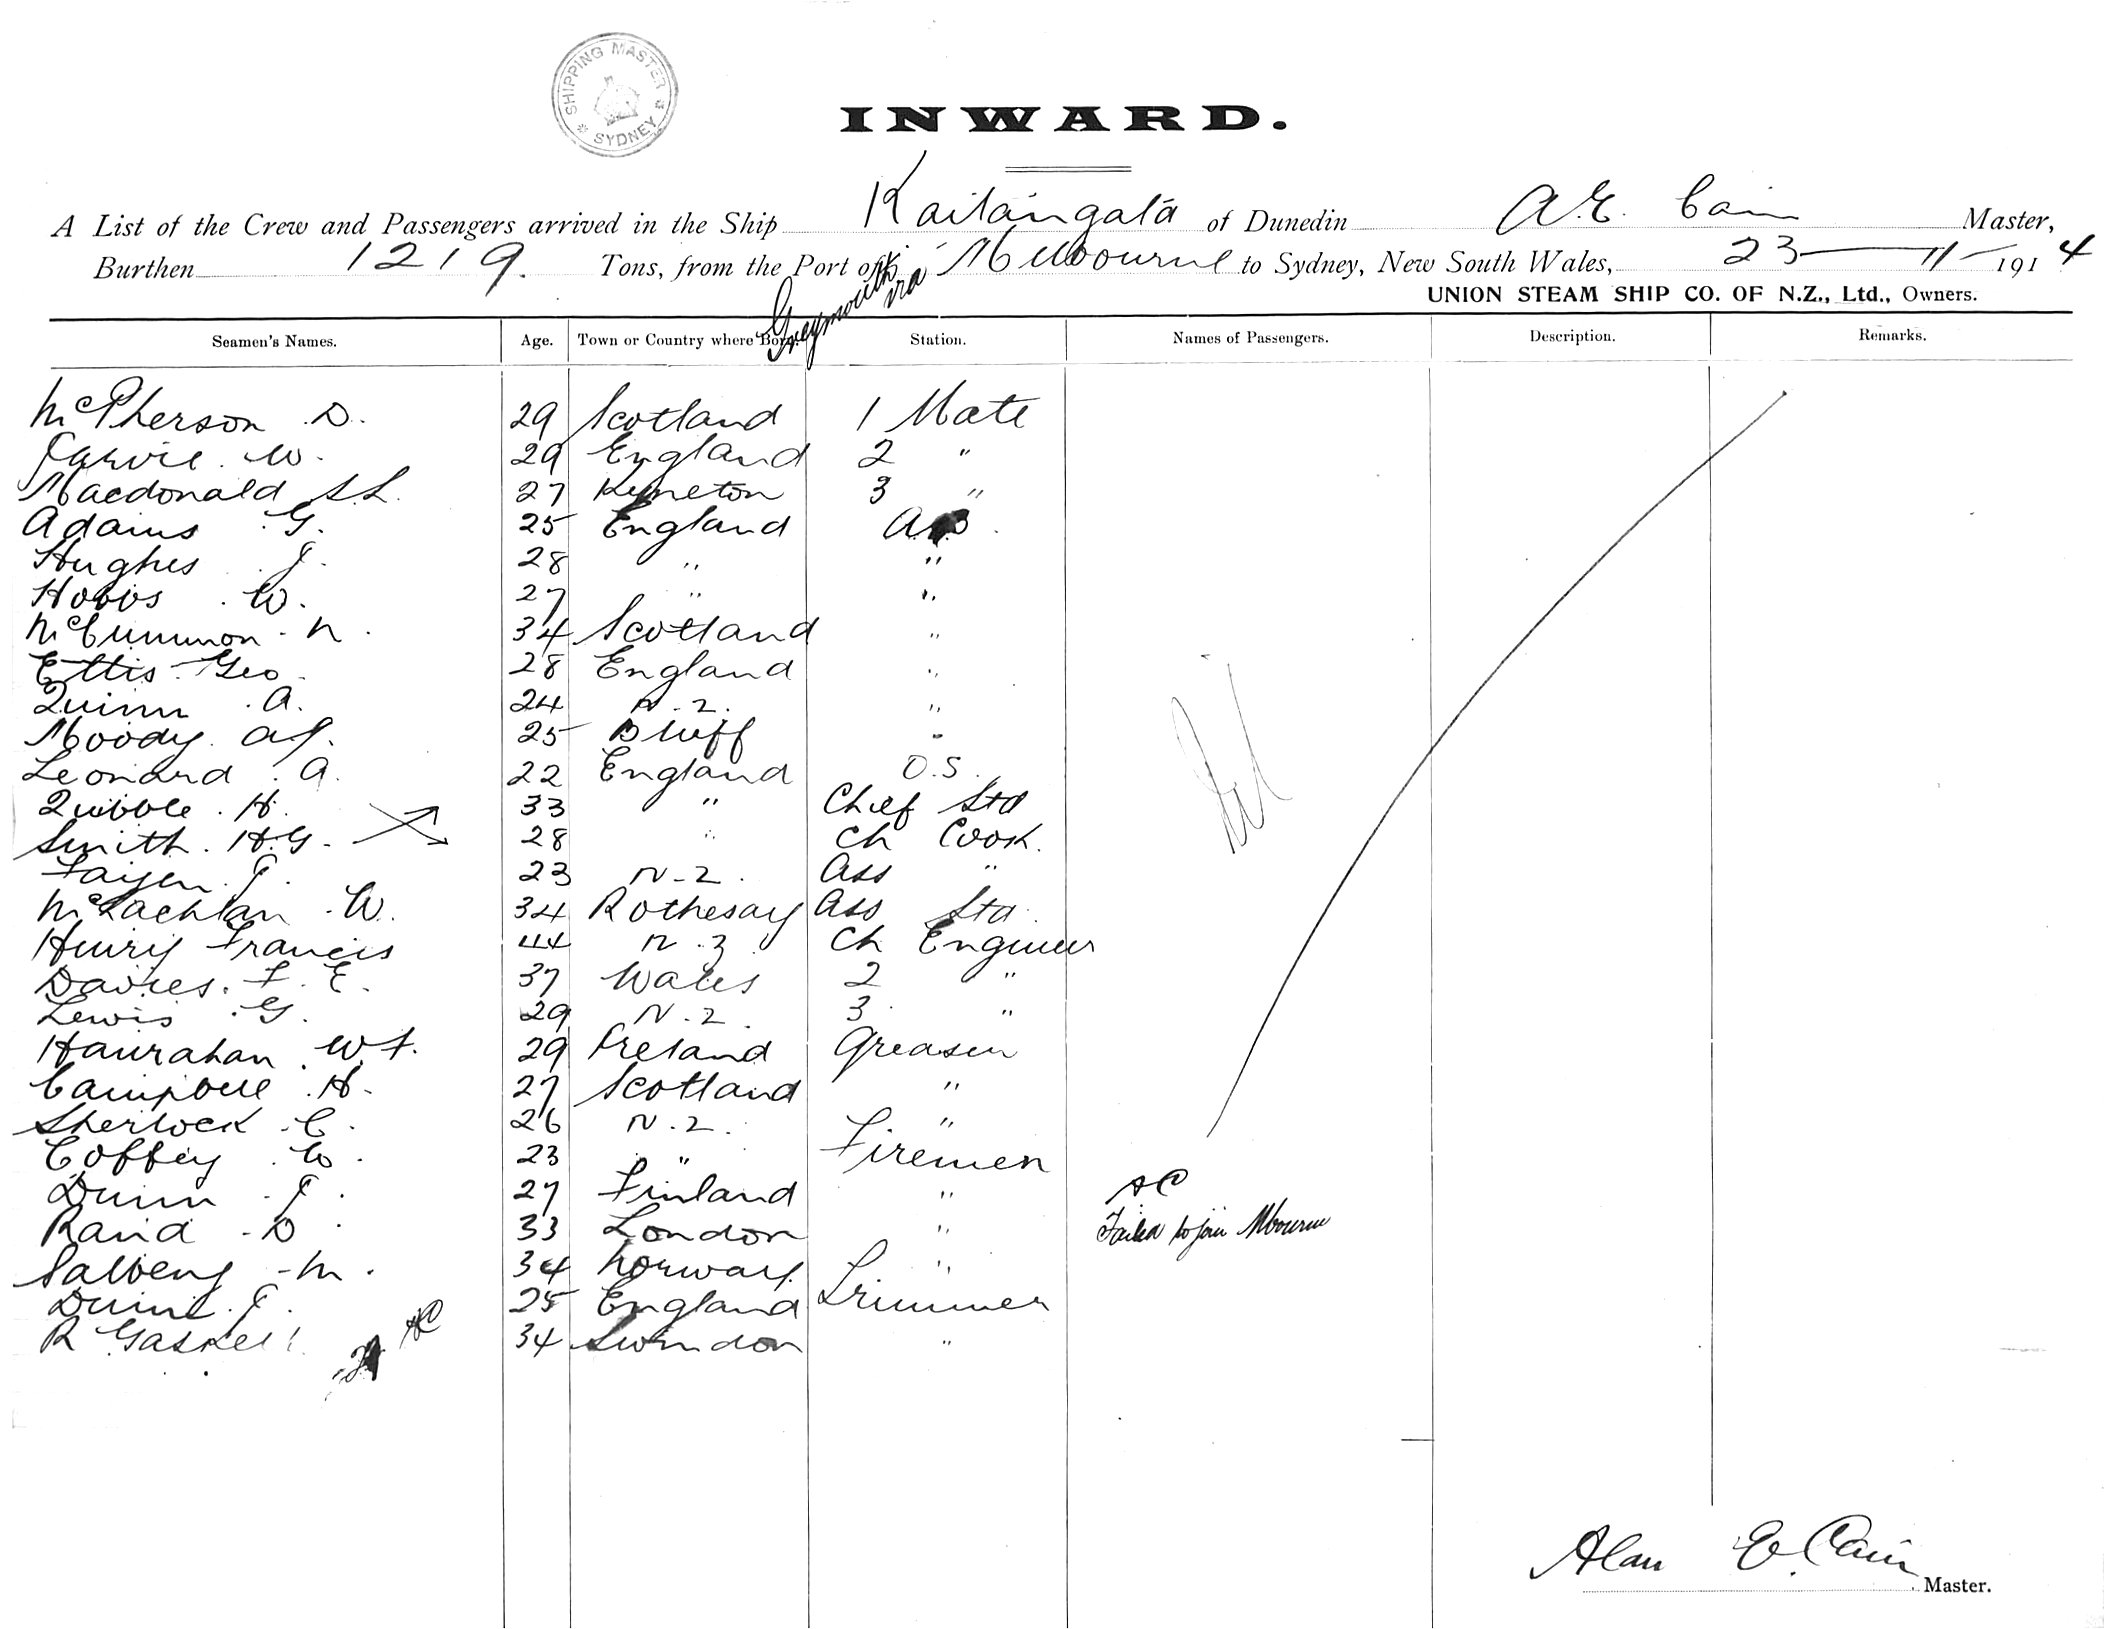 SHIPPING MASTER
SYDNEY
INWARD.
A List of the Crew and Passengers arrived in the Ship Kaitangata of Dunedin A.E. Cain Master,
Burthen 1219. Tons, from the Port of Greymouth via Melbourne to Sydney, New South Wales, 23 - 11 - 1914
UNION STEAM SHIP CO. OF N.Z., Ltd., Owners.
Seamen's Names. Age. Town or Country where Born. Station. Names of Passengers. Description. Remarks.
McPherson D. 29 Scotland 1 Mate
Jarvie W. 29 England 2 "
Macdonald S.L. 27 Kyneton 3 "
Adams G. 25 England A.B.
Hughes J. 28 " "
Hobbs W. 27 " "
McCummon N. 34 Scotland "
Ettis Geo 28 England "
Quinn A. 24 N.Z. "
Moody A.J. 25 Bluff "
Leonard A. 22 England O.S.
Quibble H. 33 " Chief Std
Smith H.G. 28 " Ch Cook.
J. 23 N.Z. Ass "
McLachlan W. 34 Rothesay Ass Std
Henry Francis 44 N.Z. Ch Engineer
Davies. F.E. 37 Wales 2 "
Lewis G. 29 N.Z. 3 "
Hanrahan W.F. 29 Ireland Greaser
Campbell H. 27 Scotland "
Sherlock C. 26 N.Z. "
Coffey W. 23 " Firemen
Dunn J. 27 Finland " AC
Rand D 33 London " Failed to join Mbourne
Salberg M. 34 Norway "
J. 25 England Trimmer
R Gaskell AC 34 Swindon "
Nil
Alan E. Cain
Master.